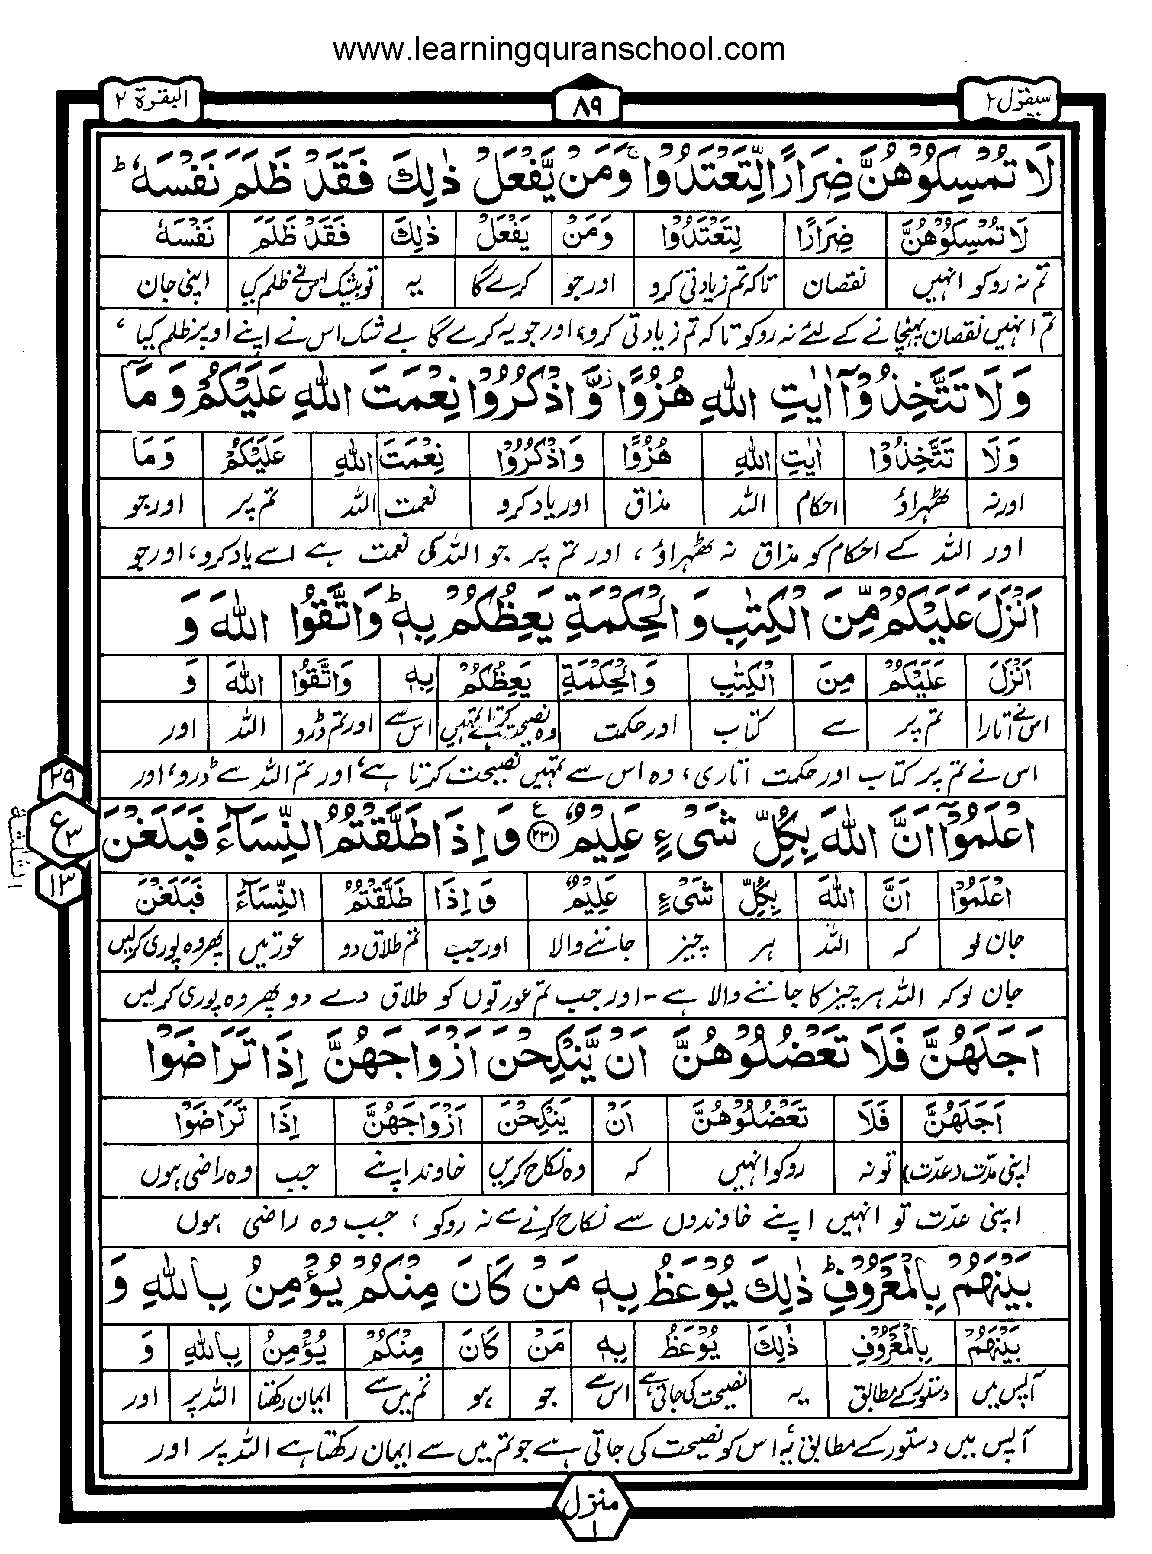 www.learningquranschool.com
سیقول ۲ ۸۹ البقرة ۲
لَا تُمْسِكُوْهُنَّ ضِرَارًا لِّتَعْتَدُوْا ۚ وَمَنْ يَّفْعَلْ ذٰلِكَ فَقَدْ ظَلَمَ نَفْسَهٗ ؕ
لَا تُمْسِكُوْهُنَّ ضِرَارًا لِتَعْتَدُوْا وَمَنْ يَفْعَلْ ذٰلِكَ فَقَدْ ظَلَمَ نَفْسَهٗ
تم نہ روکو انہیں نقصان تاکہ تم زیادتی کرو اور جو کرے گا یہ تو بیشک اس نے ظلم کیا اپنی جان
تم انہیں نقصان پہنچانے کے لئے نہ روکو تاکہ تم زیادتی کرو، اور جو یہ کرے گا بے شک اس نے اپنے اوپر ظلم کیا ،
وَلَا تَتَّخِذُوْۤا اٰيٰتِ اللّٰهِ هُزُوًا ۫ وَّاذْكُرُوْا نِعْمَتَ اللّٰهِ عَلَيْكُمْ وَمَاۤ
وَلَا تَتَّخِذُوْا اٰيٰتِ اللّٰهِ هُزُوًا وَاذْكُرُوْا نِعْمَتَ اللّٰهِ عَلَيْكُمْ وَمَا
اور نہ ٹھہراؤ احکام اللہ مذاق اور یاد کرو نعمت اللہ تم پر اور جو
اور اللہ کے احکام کو مذاق نہ ٹھہراؤ ، اور تم پر جو اللہ کی نعمت ہے اسے یاد کرو، اور جو
اَنْزَلَ عَلَيْكُمْ مِّنَ الْكِتٰبِ وَالْحِكْمَةِ يَعِظُكُمْ بِهٖ ؕ وَاتَّقُوا اللّٰهَ وَ
اَنْزَلَ عَلَيْكُمْ مِنَ الْكِتٰبِ وَالْحِكْمَةِ يَعِظُكُمْ بِهٖ وَاتَّقُوا اللّٰهَ وَ
اس نے اتارا تم پر سے کتاب اور حکمت وہ نصیحت کرتا ہے تمہیں اس سے اور تم ڈرو اللہ اور
اس نے تم پر کتاب اور حکمت اتاری، وہ اس سے تمہیں نصیحت کرتا ہے، اور تم اللہ سے ڈرو، اور
اعْلَمُوْۤا اَنَّ اللّٰهَ بِكُلِّ شَيْءٍ عَلِيْمٌ ۧ ﴿۲۳۱﴾ وَاِذَا طَلَّقْتُمُ النِّسَآءَ فَبَلَغْنَ
اعْلَمُوْا اَنَّ اللّٰهَ بِكُلِّ شَيْءٍ عَلِيْمٌ وَاِذَا طَلَّقْتُمُ النِّسَآءَ فَبَلَغْنَ
جان لو کہ اللہ ہر چیز جاننے والا اور جب تم طلاق دو عورتیں پھر وہ پوری کرلیں
جان لو کہ اللہ ہر چیز کا جاننے والا ہے - اور جب تم عورتوں کو طلاق دے دو پھر وہ پوری کرلیں
۲۹
ع ۳
۱۳
اَجَلَهُنَّ فَلَا تَعْضُلُوْهُنَّ اَنْ يَّنْكِحْنَ اَزْوَاجَهُنَّ اِذَا تَرَاضَوْا
اَجَلَهُنَّ فَلَا تَعْضُلُوْهُنَّ اَنْ يَنْكِحْنَ اَزْوَاجَهُنَّ اِذَا تَرَاضَوْا
اپنی مدت (عدت) تو نہ روکو انہیں کہ وہ نکاح کریں خاوند اپنے جب وہ راضی ہوں
اپنی عدت تو انہیں اپنے خاوندوں سے نکاح کرنے سے نہ روکو ، جب وہ راضی ہوں
بَيْنَهُمْ بِالْمَعْرُوْفِ ؕ ذٰلِكَ يُوْعَظُ بِهٖ مَنْ كَانَ مِنْكُمْ يُؤْمِنُ بِاللّٰهِ وَ
بَيْنَهُمْ بِالْمَعْرُوْفِ ذٰلِكَ يُوْعَظُ بِهٖ مَنْ كَانَ مِنْكُمْ يُؤْمِنُ بِاللّٰهِ وَ
آپس میں دستور کے مطابق یہ نصیحت کی جاتی ہے اس سے جو ہو تم میں سے ایمان رکھتا اللہ پر اور
آپس میں دستور کے مطابق یہ اس کو نصیحت کی جاتی ہے جو تم میں سے ایمان رکھتا ہے اللہ پر اور
منزل ۱